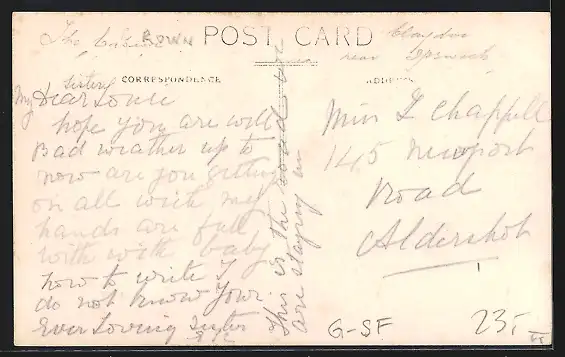 The
BROWN
POST CARD
Claydon
near Ipswich
CORRESPONDENCE
ADDRESS
My Dear Sister Louie
hope you are well
Bad weather up to
now are you getting
on all wich my
hands are full
with with baby
how to write I
do not know your
Ever Loving Sister
This is the road we
are staying in
Miss L Chappell
145 Newport
Road
Aldershot
G-SF
235